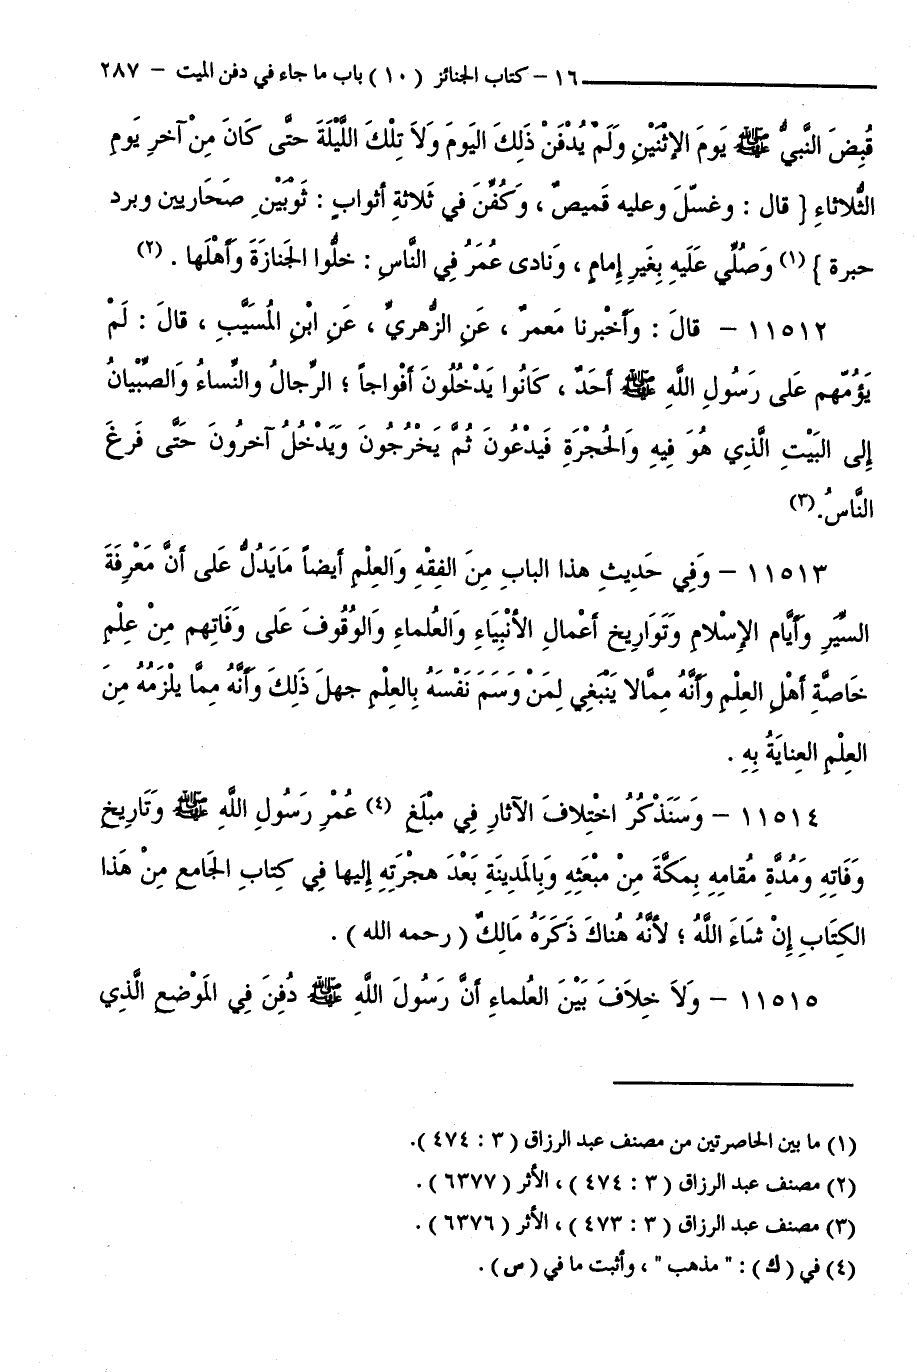 ١٦ – كتاب الجنائز ( ١٠ ) باب ما جاء في دفن الميت – ٢٨٧
قُبِضَ النَّبيُّ ﷺ يَومَ الإثْنَيْنِ وَلَمْ يُدْفَنْ ذَلِكَ اليَومَ وَلاَ تِلْكَ اللَّيْلَةَ حتَّى كَانَ مِنْ آخرِ يَومِ
الثُّلاثاءِ { قال : وغسّلَ وعليه قَميصٌ ، وَكُفِّنَ في ثَلاثةِ أثوابٍ : ثَوْبَيْنِ صَحَاريين وبرد
حبرة } (١) وَصُلِّي عَلَيهِ بِغَيرِ إِمامٍ ، وَنادى عُمَرُ فِي النَّاسِ : خلُّوا الجَنازَةَ وَأَهْلَها . (٢)
١١٥١٢ – قالَ : وَأَخْبرنا مَعمرٌ ، عَنِ الزُّهريِّ ، عَنِ ابْنِ المُسَيَّبِ ، قالَ : لَمْ
يَؤُمّهم عَلى رَسُولِ اللَّهِ ﷺ أحَدٌ ، كَانُوا يَدْخُلُونَ أفْواجاً ؛ الرِّجالُ والنِّساءُ وَالصِّبْيانُ
إِلى البَيْتِ الَّذِي هُوَ فِيهِ وَالحُجْرَةِ فَيدْعُونَ ثُمَّ يَخْرُجُونَ وَيَدْخُلُ آخرُونَ حَتَّى فَرغَ
النَّاسُ.(٣)
١١٥١٣ – وَفِي حَدِيثِ هذا البابِ مِنَ الفِقْهِ وَالعِلْمِ أيضاً مَايَدُلُّ عَلى أنَّ مَعْرِفَةَ
السِّيَرِ وَأيَّامِ الإِسْلامِ وَتَوَاريخِ أعْمالِ الأنْبِيَاءِ وَالعُلماءِ وَالوُقُوفَ عَلى وَفَاتِهم مِنْ عِلْمِ
خَاصَّةِ أهْلِ العِلْمِ وَأنَّهُ مِمَّالا يَنْبَغِي لِمَنْ وَسَمَ نَفْسَهُ بِالعِلْمِ جهلَ ذَلِكَ وَأنَّهُ مِمَّا يلْزَمُهُ مِنَ
العِلْمِ العِنايَةُ بِهِ .
١١٥١٤ – وَسَنَذْكُرُ اخْتِلافَ الآثارِ فِي مبْلَغِ (٤) عُمْرِ رَسُولِ اللَّهِ ﷺ وَتَاريخِ
وَفَاتِهِ وَمُدَّةِ مُقامِهِ بِمَكَّةَ مِنْ مبْعَثِهِ وَبِالمَدِينَةِ بَعْدَ هجْرَتِهِ إليها فِي كِتابِ الجَامعِ مِنْ هَذا
الكِتَابِ إِنْ شاءَ اللَّهُ ؛ لأنَّهُ هُناكَ ذَكَرَهُ مَالِكٌ ( رحمه الله ) .
١١٥١٥ – وَلاَ خِلاَفَ بَيْنَ العُلماءِ أنَّ رَسُولَ اللَّهِ ﷺ دُفِنَ فِي المَوْضعِ الَّذِي
(١) ما بين الحاصرتين من مصنف عبد الرزاق ( ٣ : ٤٧٤ ).
(٢) مصنف عبد الرزاق ( ٣ : ٤٧٤ ) ، الأثر ( ٦٣٧٧ ) .
(٣) مصنف عبد الرزاق ( ٣ : ٤٧٣ ) ، الأثر ( ٦٣٧٦ ) .
(٤) في ( ك ) : " مذهب " ، وأثبت ما في ( س ) .